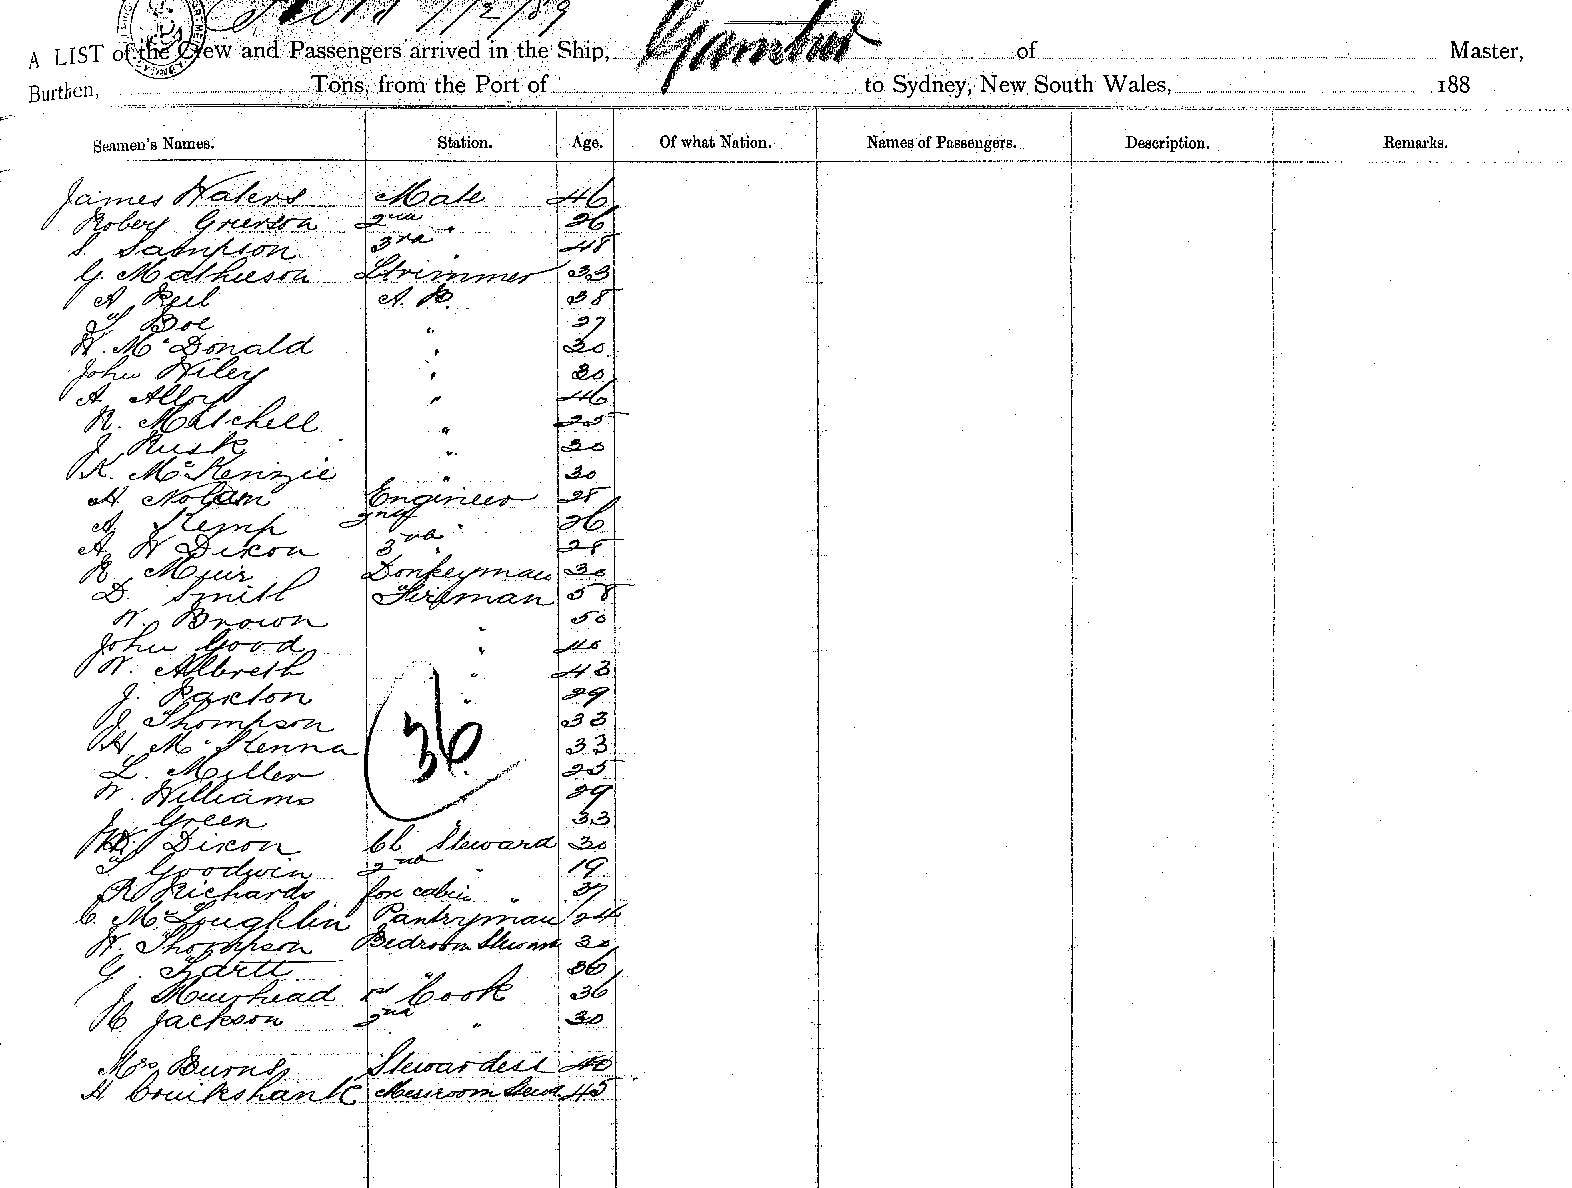 7/2/89
A LIST of the Crew and Passengers arrived in the Ship, Gambier of Master,
Burthen, Tons, from the Port of to Sydney, New South Wales, 188
Seamen's Names. Station. Age. Of what Nation. Names of Passengers. Description. Remarks.
James Waters Mate 46
Robert Grierson 2nd " 26
S. Sampson 3rd 48
G. Mathieson Strimmer 33
A Reil A. B. 38
T Boe " 27
W. McDonald " 30
John Wiley " 30
A. Alloy " 46
R. Mitchell " 25
J Rusk " 30
K. McKenzie " 30
H Nolan Engineer 28
A Kemp 2nd " 26
A W Dixon 3rd " 28
R. Muir Donkeyman 30
D. Smith Fireman 58
W. Brown " 50
John Good " 40
W. Albreth " 43
J. Paxton " 29
J Thompson 33
H. McKenna 33
L. Miller 25
W. Williams 29
J Green 33
36
Dixon Ch Steward 30
T Goodwin 2nd " 19
R Richards fore cabin " 37
C. McLoughlin Pantryman 24
W. Thompson Bedroom Steward 30
G. 36
J Muirhead Cook 36
H Jackson 2nd " 30
Mrs Burns Stewardess 40
H Cruikshank Messroom Stewd 45